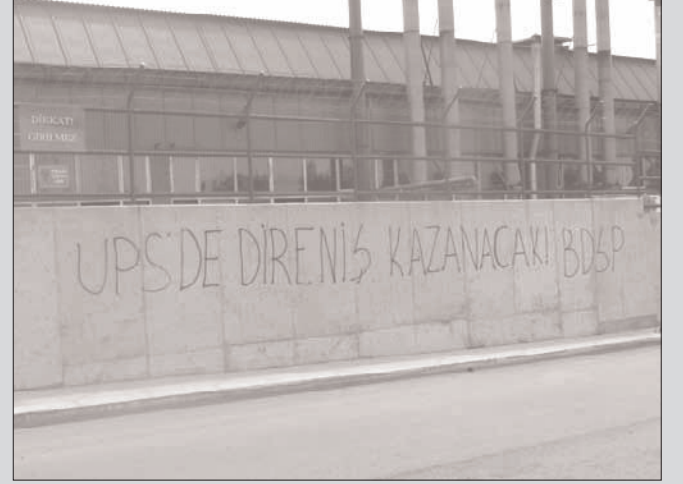 DİKKAT!
GİRİLMEZ
UPS'DE DİRENİŞ KAZANACAK! BDSP